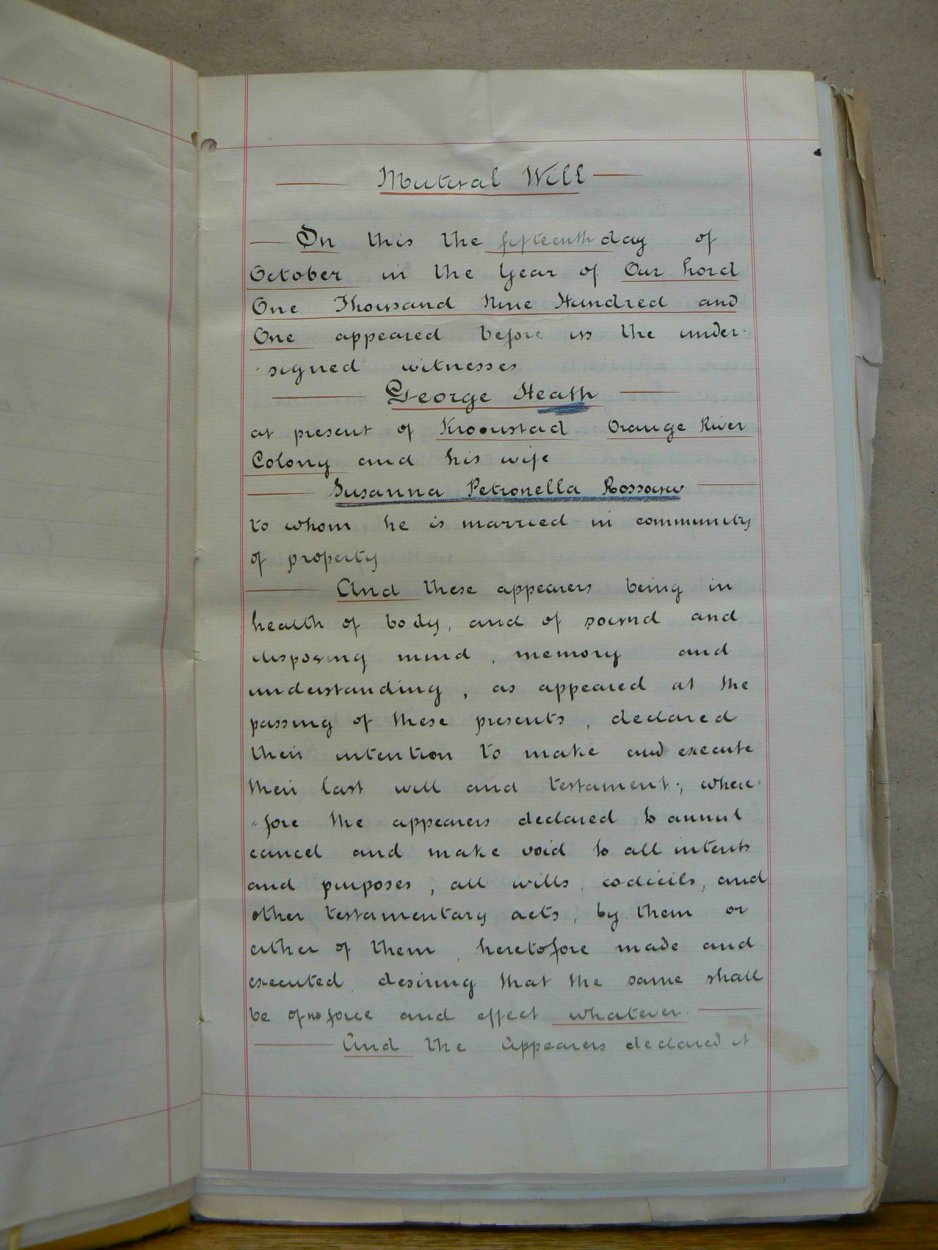 Mutual Will
On this the fifteenth day of
October in the Year of Our Lord
One Thousand Nine Hundred and
One appeared before us the under-
-signed witnesses
George Heath
at present of Kroonstad Orange River
Colony and his wife
Susanna Petronella Rossouw
to whom he is married in community
of property
And these appearers being in
health of body, and of sound and
disposing mind, memory and
understanding, as appeared at the
passing of these presents, declared
their intention to make and execute
their last will and testament; where-
-fore the appearers declared to annul
cancel and make void to all intents
and purposes, all wills, codicils, and
other testamentary acts, by them or
either of them, heretofore made and
executed, desiring that the same shall
be of no force and effect whatever.
And the Appearers declared it